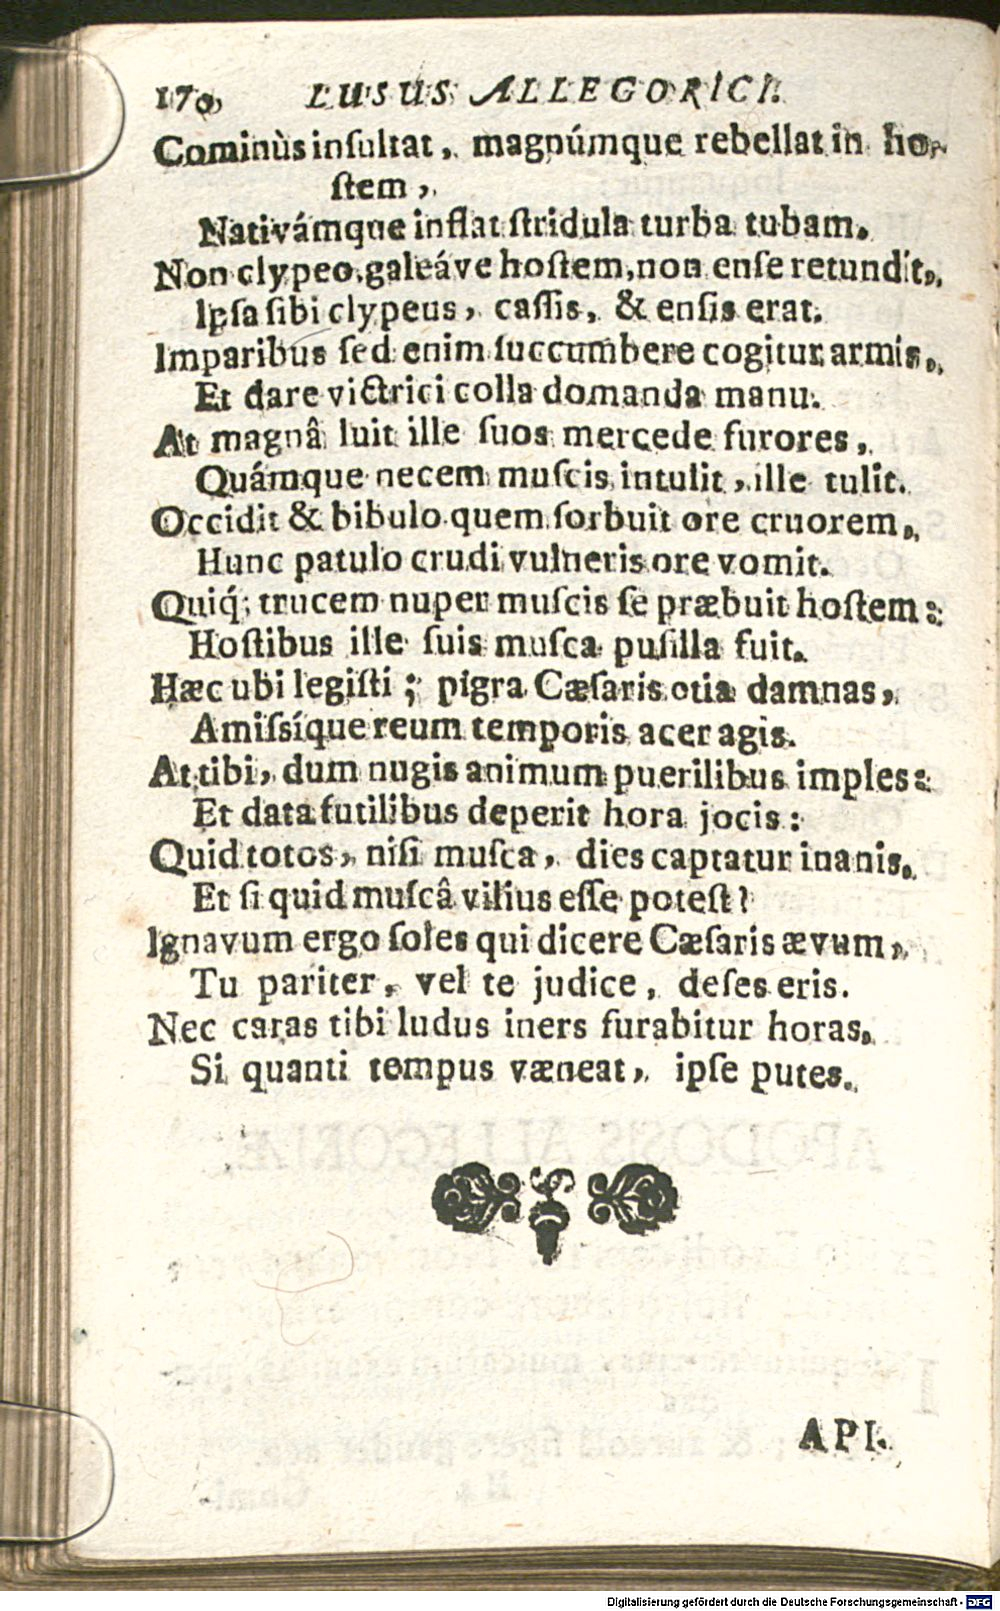 170 LUSUS ALLEGORICI.
Cominùs inſultat, magnúmque rebellat in ho-
ſtem,
Nativámque inflat ſtridula turba tubam.
Non clypeo, galeáve hoſtem, non enſe retundit,
Ipſa ſibi clypeus, caſſis, & enſis erat.
Imparibus ſed enim ſuccumbere cogitur armis,
Et dare victrici colla domanda manu.
At magnâ luit ille ſuos mercede furores,
Quámque necem muſcis intulit, ille tulit.
Occidit & bibulo quem ſorbuit ore cruorem,
Hunc patulo crudi vulneris ore vomit.
Quiq́; trucem nuper muſcis ſe præbuit hoſtem:
Hoſtibus ille ſuis muſca puſilla fuit.
Hæc ubi legiſti; pigra Cæſaris otia damnas,
Amiſsíque reum temporis acer agis.
At tibi, dum nugis animum puerilibus imples:
Et data futilibus deperit hora jocis:
Quid totos, niſi muſca, dies captatur inanis,
Et ſi quid muſcâ vilius eſſe poteſt?
Ignavum ergo ſoles qui dicere Cæſaris ævum,
Tu pariter, vel te judice, deſes eris.
Nec caras tibi ludus iners furabitur horas,
Si quanti tempus væneat, ipſe putes.
API.
Digitalisierung gefördert durch die Deutsche Forschungsgemeinschaft - DFG